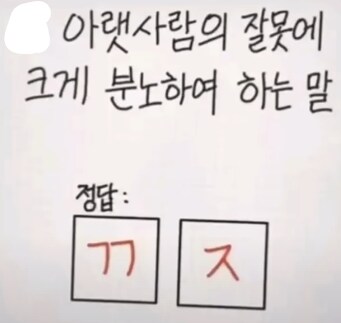 아랫사람의 잘못에
크게 분노하여 하는 말
정답:
ㄲ ㅈ